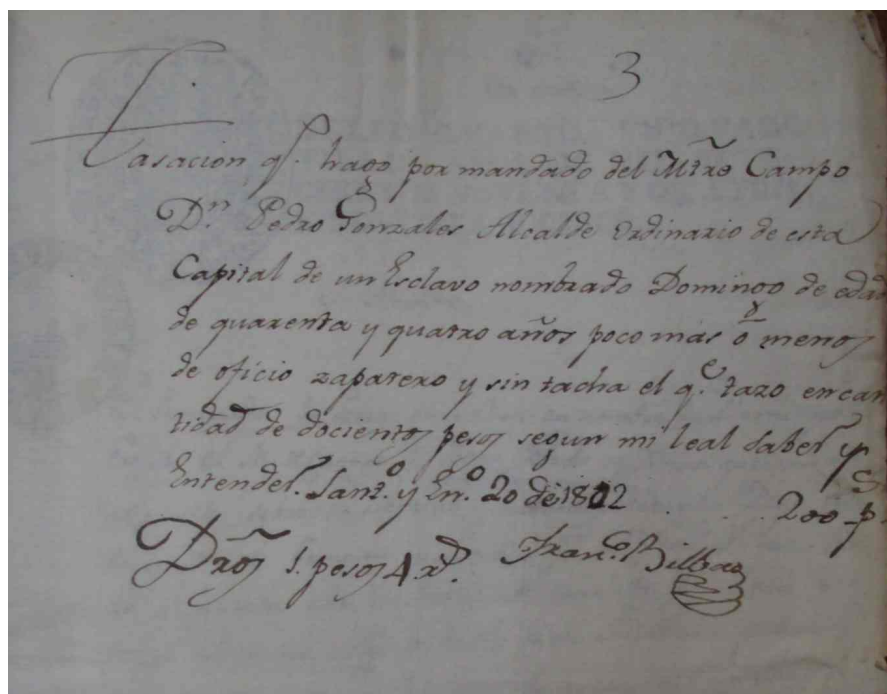 3
Tasacion q.e hago por mandado del Mtre Campo
Dn. Pedro Gonzales Alcalde ordinario de esta
Capital de un Esclavo nombrado Domingo de edad
de quarenta y quatro años poco mas ó menos
de oficio zapatero y sin tacha el q.e tazo en can
tidad de docientos pesos segun mi leal saber y
Entender. Sant.o y En.o 20 de 1802 . . . 200 ps
Dros 1. pesos 4 rs. Fran.co Bilbao